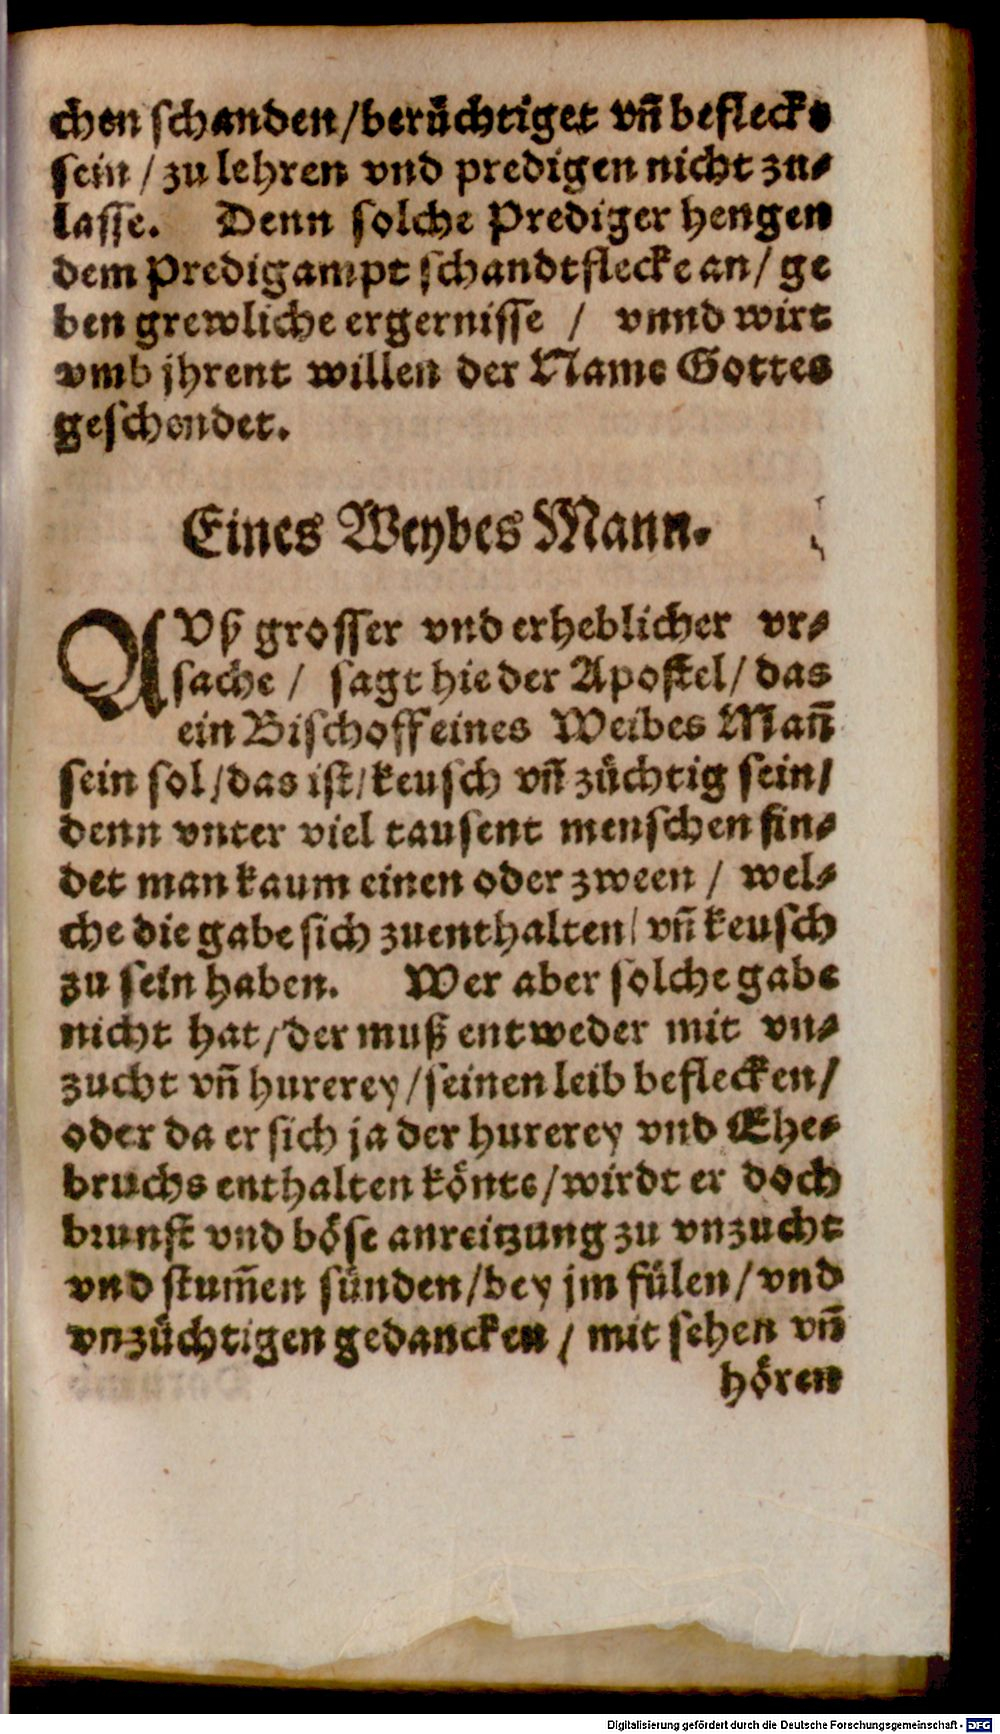 chen schanden/berüchtiget vn̄ befleckt
sein / zu lehren vnd predigen nicht zu-
lasse. Denn solche Prediger hengen
dem Predigampt schandtflecke an/ ge
ben grewliche ergernisse / vnnd wirt
vmb jhrent willen der Name Gottes
geschendet.
Eines Weybes Mann.
AVß grosser vnd erheblicher vr-
sache / sagt hie der Apostel/ das
ein Bischoff eines Weibes Man̄
sein sol/das ist/keusch vn̄ züchtig sein/
denn vnter viel tausent menschen fin-
det man kaum einen oder zween / wel-
che die gabe sich zuenthalten/ vn̄ keusch
zu sein haben. Wer aber solche gabe
nicht hat/der muß entweder mit vn-
zucht vn̄ hurerey/seinen leib beflecken/
oder da er sich ja der hurerey vnd Ehe-
bruchs enthalten könte/wirdt er doch
brunst vnd böse anreitzung zu vnzucht
vnd stum̄en sünden/bey jm fülen/vnd
vnzüchtigen gedancken / mit sehen vn̄
hören
Digitalisierung gefördert durch die Deutsche Forschungsgemeinschaft - DFG